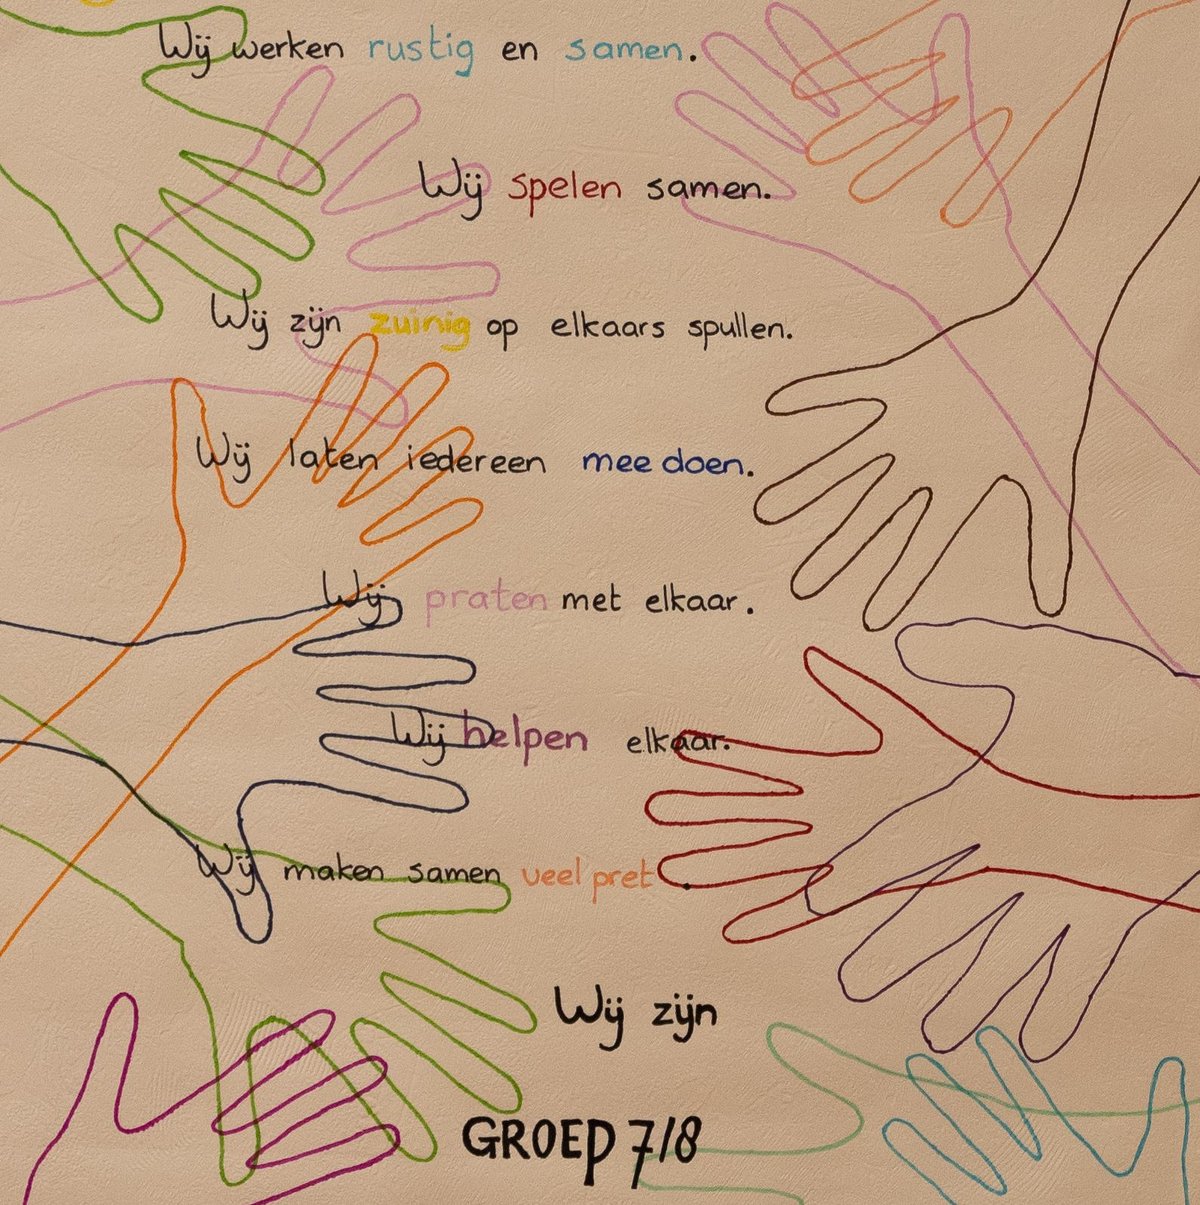 Wij werken rustig en samen.
Wij spelen samen.
Wij zijn zuinig op elkaars spullen.
Wij laten iedereen mee doen.
Wij praten met elkaar.
Wij helpen elkaar.
Wij maken samen veel pret.
Wij zijn
GROEP 7/8